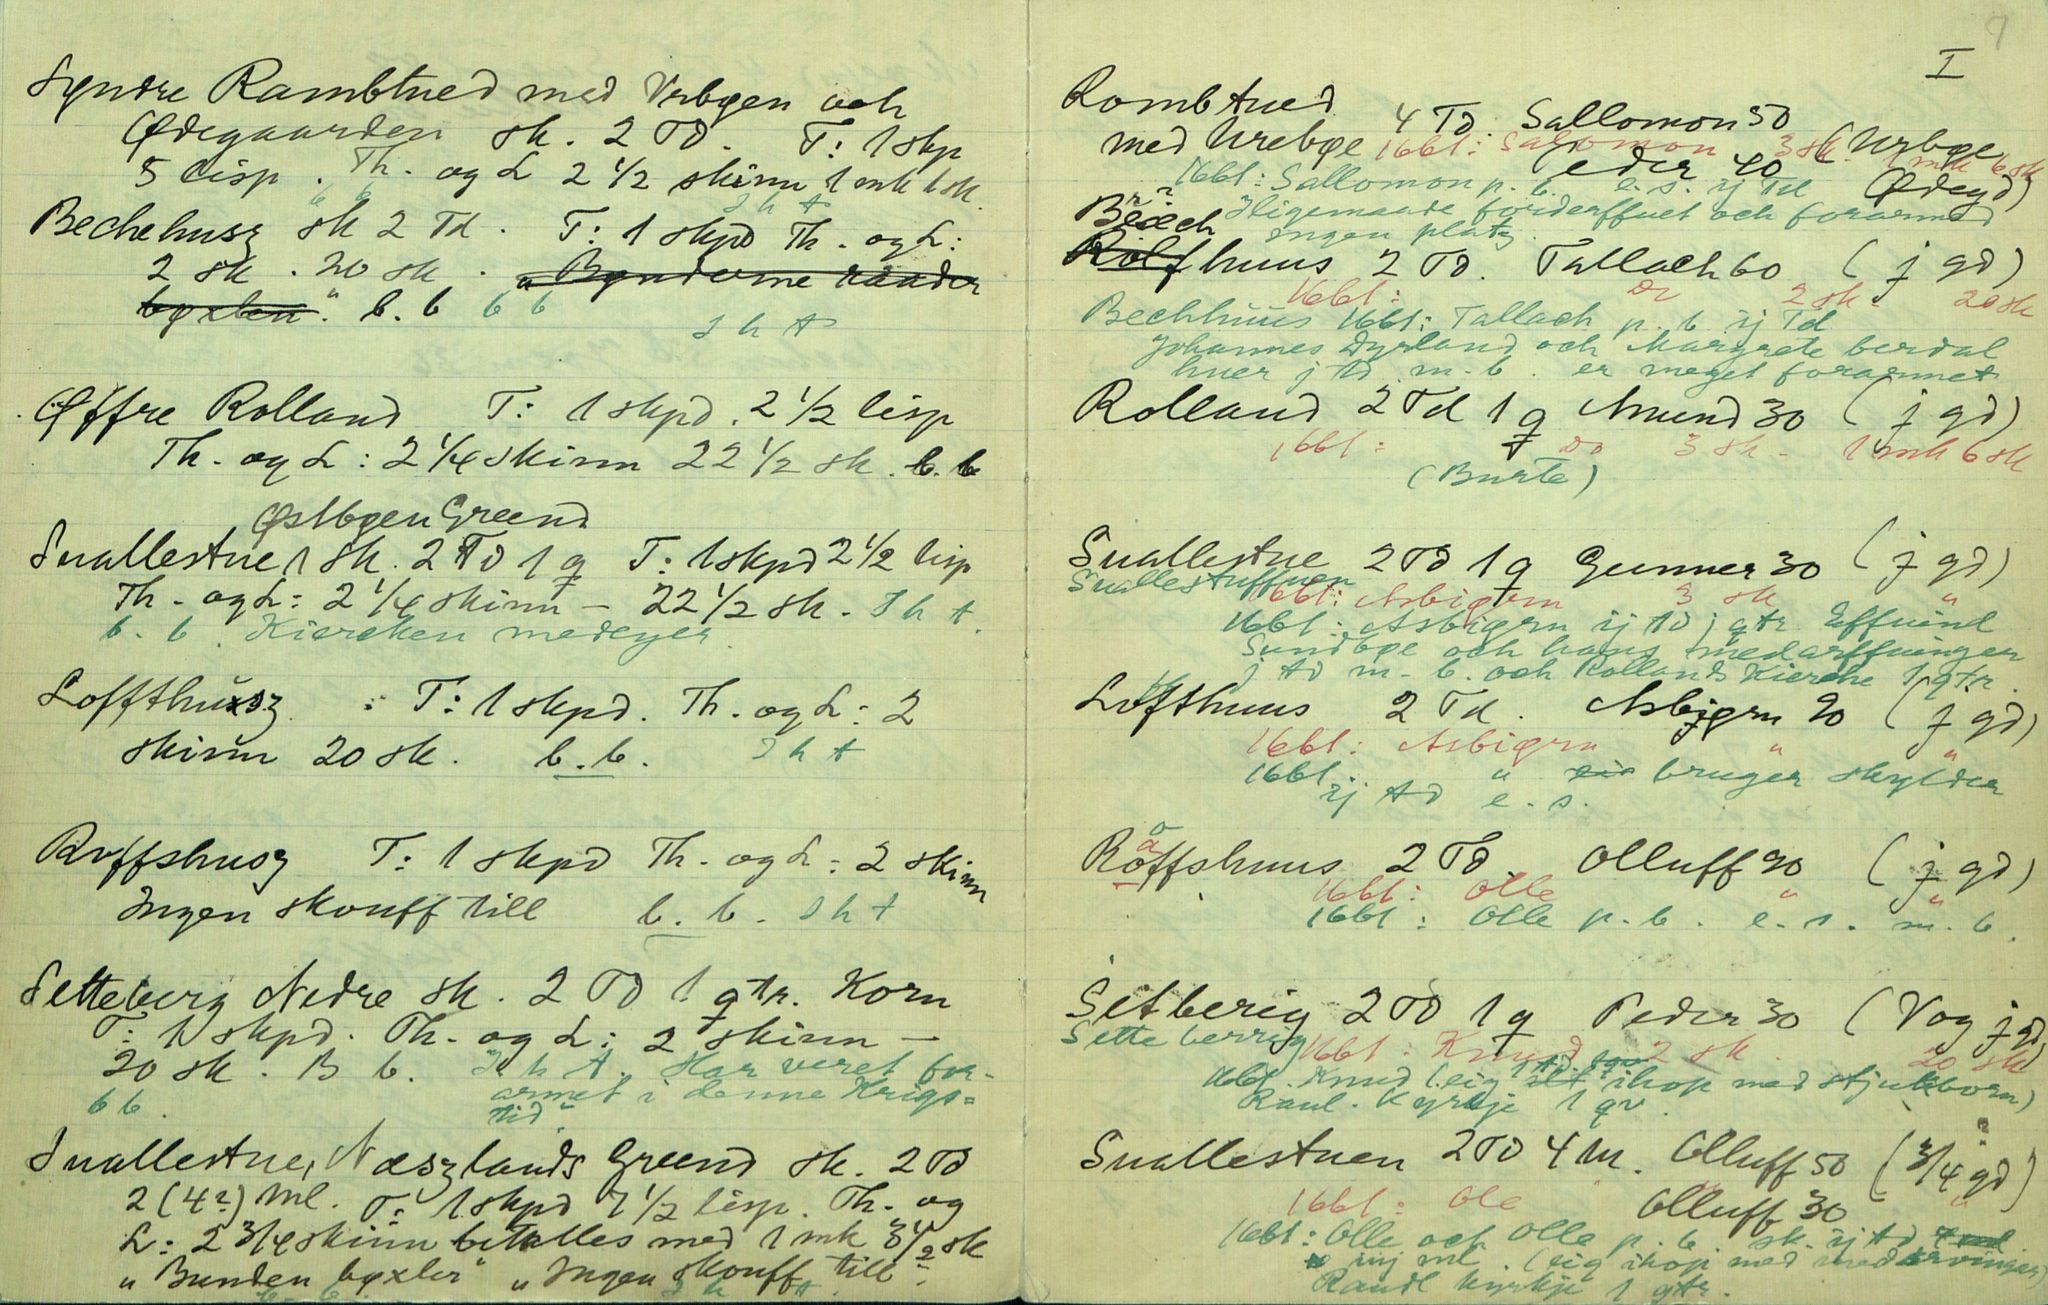 Syndre Rambtued med Vrbøen och
Ødegaarden sk. 2 TD. T: 1 skp
5 lisp. Th. og L 2 1/2 skinn 1 mk 6 sk.
b b J h t
Bechehusz sk 2 Td. T: 1 skpd Th. og L:
2 sk. 20 sk. "Bynderne raader
bøxlen". b. b b b
J h t
Øffre Rolland T: 1 skpd. 2 1/2 lisp
Th. og L: 2 1/4 skinn 22 1/2 sk. b. b
Østbøen Greend
Suallestue 1 sk. 2 TD 1 q T: 1 skpd 2 1/2 lisp
Th. og L: 2 1/4 skinn - 22 1/2 sk. J h t.
b. b. Kiercken medeyer
Loffthusz : T: 1 skpd. Th. og L: 2
skinn 20 sk. b. b. J h t
Roffshusz T: 1 skpd Th. og L: 2 skinn
Ingen skouff till b. b. J h t
Setteberg Nedre sk. 2 TD 1 qtr. Korn
T: 1 skpd. Th. og L: 2 skinn -
20 sk. B b. J h t. Har veret for-
armet i denne Krigs=
b b. tid"
Suallestue, Næszlands Greend sk. 2 TD
2 (4?) ml. T: 1 skpd 7 1/2 lisp. Th. og
L: 2 3/4 skinn betalles med 1 mk 3 1/2 sk
"Bunden bøxler" "Ingen skouff till".
b. b. J h t.
7
I
Rombtued 4 TD. Sallomon 50 (Urbøe
med Urebøe 1661: Salomon 3 sk. 1 mk 6 sk
Peder 40 Ødegd)
1661: Sallomon p. b. e. s. ij Td
Iligemaade forderffuet och forarmed
ingen platz
Beech
Rolfhuus 2 TD. Tallach 60 (j gd)
1661: Do 2 sk. 20 sk
Bechhuus 1661: Tallach p. b ij Td
Johannes Dyrland och Margrete berdal
huer j td m. b. er meget forarmet
Rolland 2 Td 1 q Amund 30 (j gd)
1661: Do 3 sk. 1 mk 6 sk
(Burte)
Suallestue 2 TD 1 q Gunner 30 (j gd)
Suallestuffuen
1661: Asbiørn 3 sk "
1661: Asbiørn ij td j qtr. Effuind
Sundbøe och hans medarffuinger
j td m. b. och Rollands Kierche 1 qtr.
Lofthuus 2 Td. Asbjørn 90 (j gd)
1661: Asbiørn " "
1661 " bruger skylder
ij td e. s.
Roffshuus 2 TD. Olluff 90 (j gd)
1661: Olle " "
1661: Olle p. b. e. s. m. b.
Setberig 2 TD 1 q Peder 30 (V og j gd)
Sette berrig
1661: Knud 2 sk. 20 sk
1661. Knud (eig ihop med stjukborn)
Raul. Kyrkje 1 qv.
Suallestuen 2 TD 4 m. Olluff 50 (3/4 gd)
1661: Ole Olluff 30 "
1661: Olle och Olle p. b sk. ij td
iiij ml. (eig ihop med medarvinger)
Raul kyrkje 1 qtr.